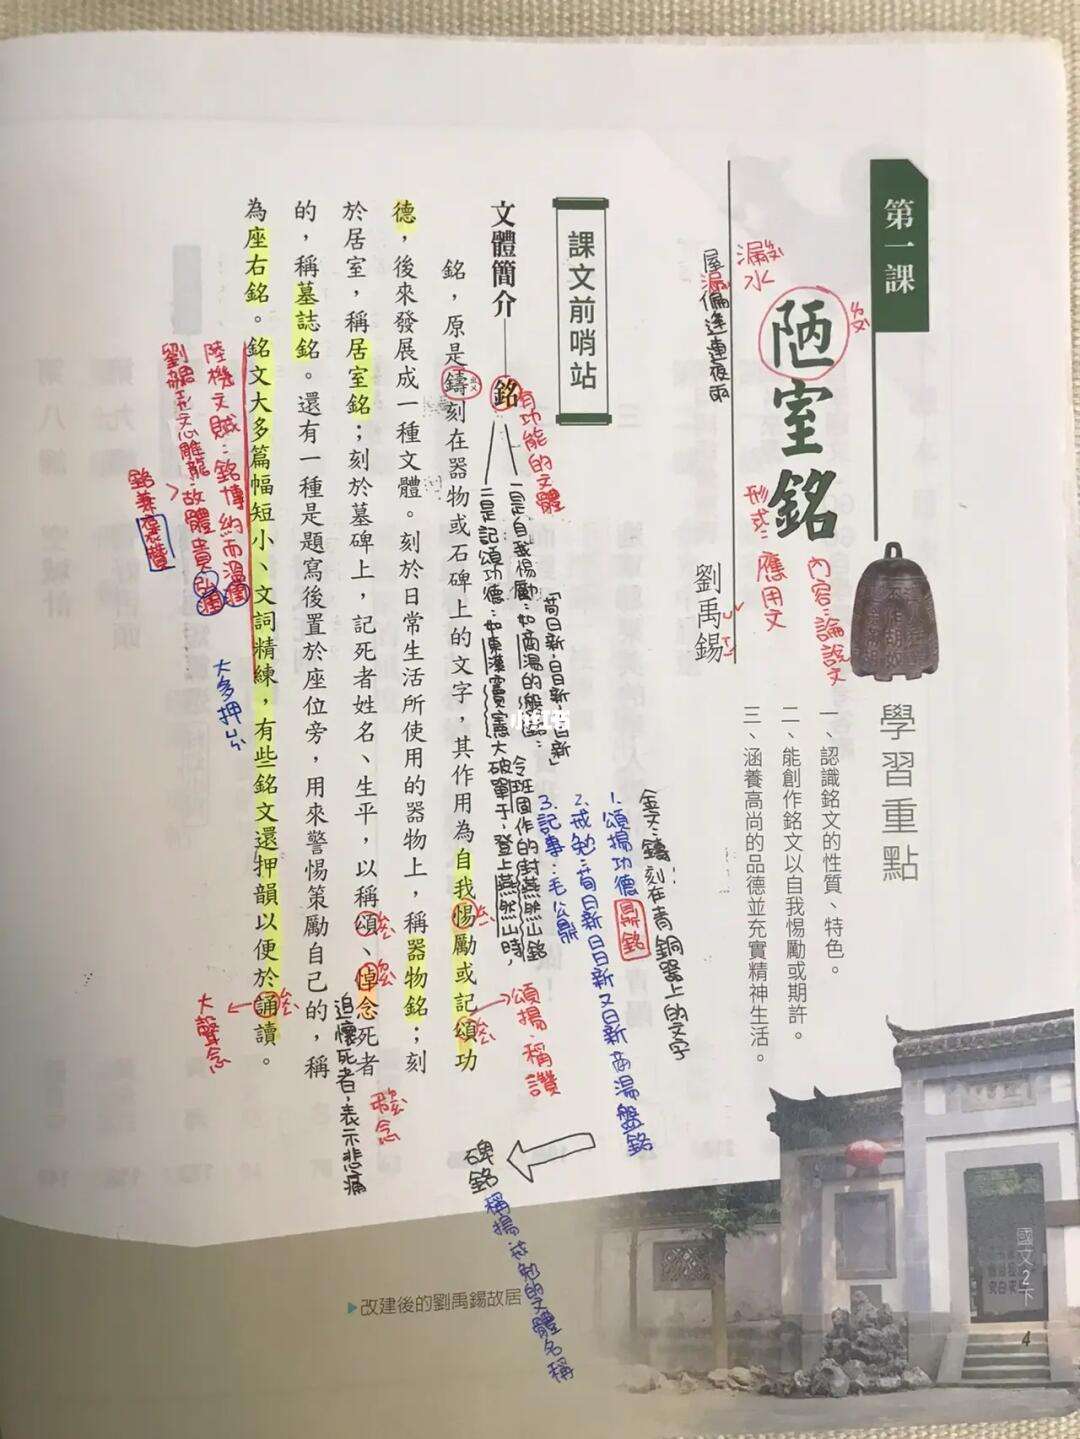 第一課
陋室銘
ㄌㄡˋ
漏ㄌㄡˋ水
屋漏偏逢連夜雨
劉禹錫
形式：應用文
內容：論說文
學習重點
一、認識銘文的性質、特色。
二、能創作銘文以自我惕勵或期許。
三、涵養高尚的品德並充實精神生活。
課文前哨站
文體簡介
銘
有功能的文體
一是自我惕勵：如商湯的盤銘：
「苟日新，日日新，又日新」
二是記頌功德：如東漢竇憲大破單于，登上燕然山時，
令班固作的封燕然山銘
金文：鑄刻在青銅器上的文字
1.頌揚功德 鼎銘
2.戒勉：苟日新日日新又日新 商湯盤銘
3.記事：毛公鼎
碑銘
稱揚、戒勉的文體名稱
銘，原是鑄刻在器物或石碑上的文字，其作用為自我惕勵或記頌功
ㄓㄨˋ
ㄊㄧˋ
ㄙㄨㄥˋ
頌揚 稱讚
德，後來發展成一種文體。刻於日常生活所使用的器物上，稱器物銘；刻
於居室，稱居室銘；刻於墓碑上，記死者姓名、生平，以稱頌、悼念死者
ㄙㄨㄥˋ
ㄉㄠˋ
追懷死者，表示悲痛
的，稱墓誌銘。還有一種是題寫後置於座位旁，用來警惕策勵自己的，稱
為座右銘。銘文大多篇幅短小、文詞精練，有些銘文還押韻以便於誦讀。
ㄙㄨㄥˋ
大聲念
大多押ㄙˋ
陸機文賦：銘博約而溫潤
劉勰文心雕龍：故體貴弘潤
銘兼褒讚
小红书
改建後的劉禹錫故居
國文2下
4